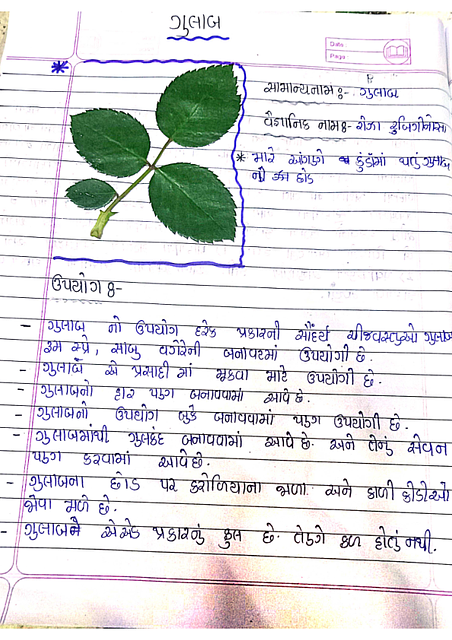 ગુલાબ
Date :
Page :
સામાન્યનામ :- ગુલાબ
વૈજ્ઞાનિક નામ :- રોઝા રુબિગીનોસા
* મારે આંગણે કુંડામાં થતું ગુલાબ
નો છોડ
ઉપયોગ :-
- ગુલાબ નો ઉપયોગ દરેક પ્રકારની સૌંદર્ય ચીજવસ્તુઓ ગુલાબ
રૂમ સ્પ્રે, સાબુ વગેરેની બનાવટમાં ઉપયોગી છે.
- ગુલાબ એ પ્રસાદી માં મૂકવા માટે ઉપયોગી છે.
- ગુલાબનો હાર પણ બનાવવામાં આવે છે.
- ગુલાબનો ઉપયોગ બુકે બનાવવામાં પણ ઉપયોગી છે.
- ગુલાબમાંથી ગુલકંદ બનાવવામાં આવે છે. અને તેનું સેવન
પણ કરવામાં આવે છે.
- ગુલાબના છોડ પર કરોળિયાના જાળા અને કાળી કીડીઓ
જોવા મળે છે.
- ગુલાબ એ પ્રકારનું ફુલ છે. તેણે ફળ હોતું નથી.